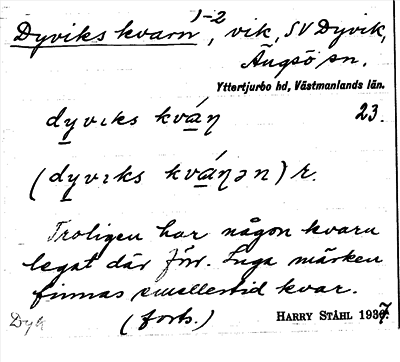 Dyviks kvarn 1-2, vik, SV Dyvik,
Ängsö sn.
Yttertjurbo hd, Västmanlands län.
dyvıks kvá̱ɳ 23.
(dyvıks kvá̱ɳən) r.
Troligen har någon kvarn
legat där förr. Inga märken
finnas emellertid kvar.
(forts.)
HARRY STÅHL 1937.
Dyk